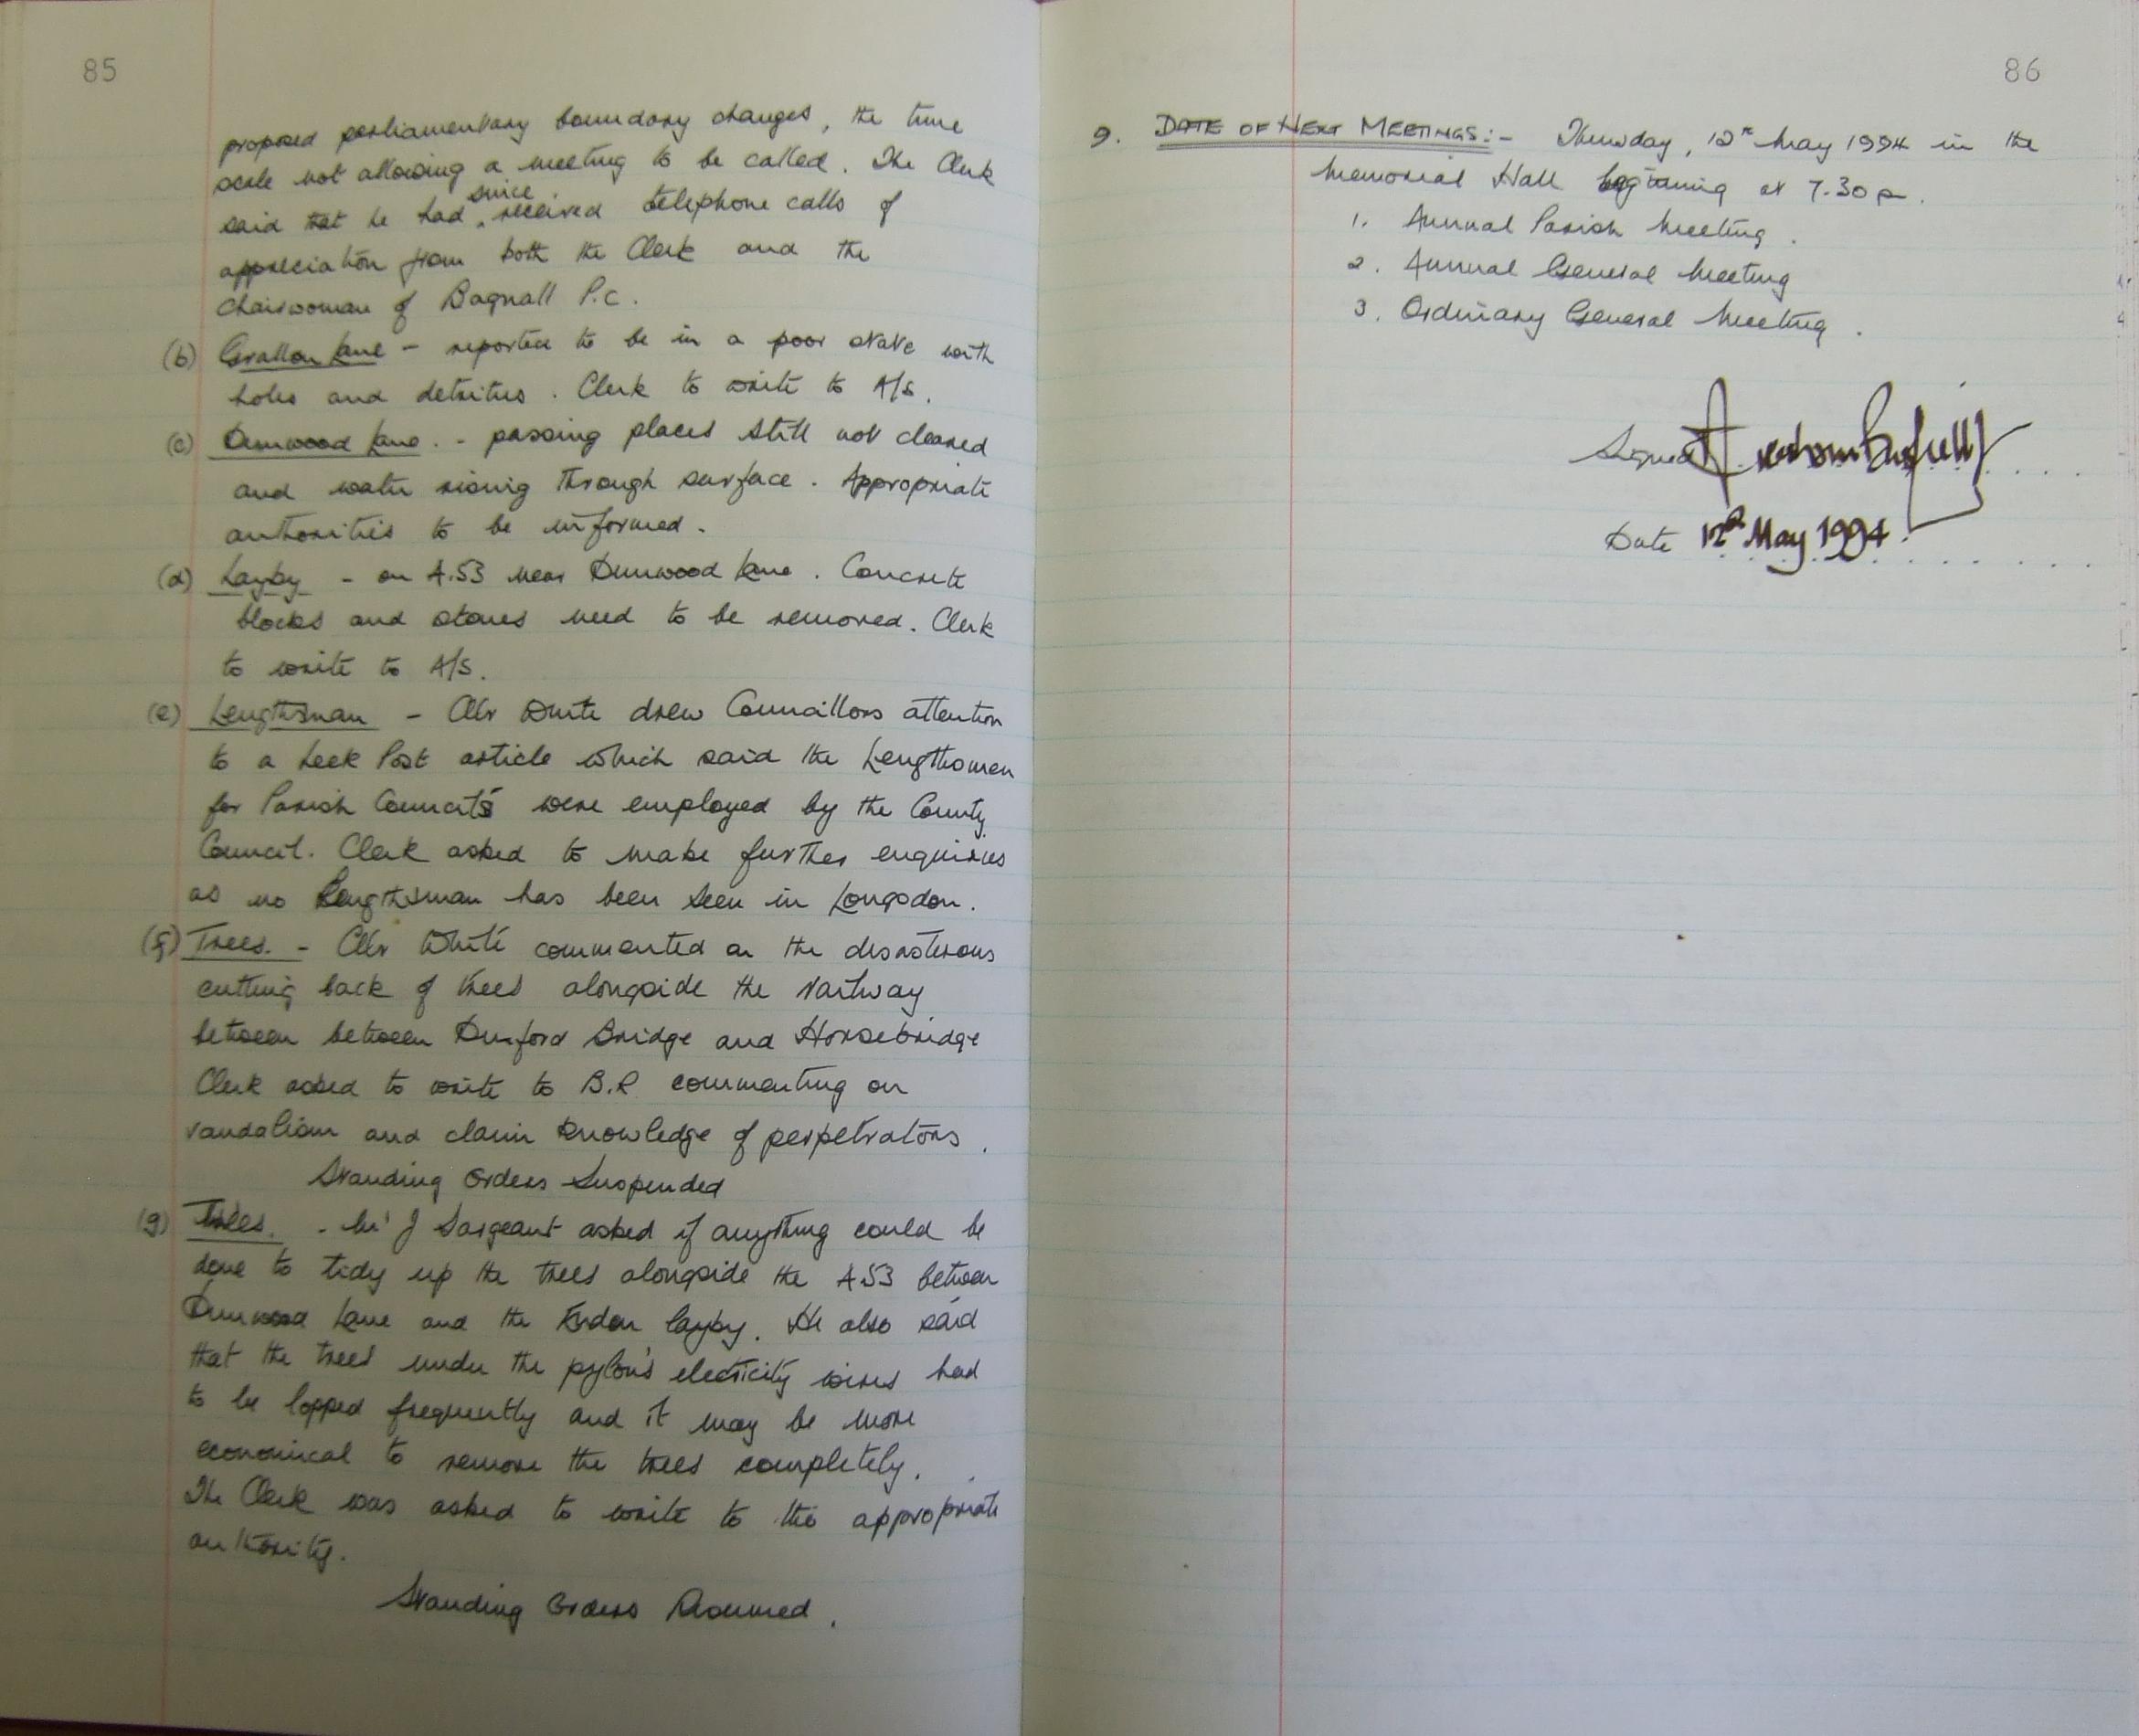 85
proposed parliamentary boundary changes, the time
scale not allowing a meeting to be called. The Clerk
since
said that he had received telephone calls of
appreciation from both the Clerk and the
Chairwoman of Bagnall P.C.
(b) Lane - reported to be in a poor state with
holes and detritus. Clerk to write to A/S.
(c) Dunwood Lane. - passing places still not cleared
and water rising through surface. Appropriate
authorities to be informed.
(d) Layby - on A.53 near Dunwood Lane. Concrete
blocks and stones need to be removed. Clerk
to write to A/S.
(e) Lengthsman - Cllr White drew Councillors attention
to a Leek Post article which said the Lengthsmen
for Parish Councils were employed by the County
Council. Clerk asked to make further enquiries
as no Lengthsman has been seen in Longsdon.
(f) Trees. - Cllr White commented on the disasterous
cutting back of trees alongside the railway
between between Bridge and Horsebridge
Clerk asked to write to B.R commenting on
vandalism and claim knowledge of perpetrators.
Standing Orders Suspended
(g) Trees. - Mr J Sargeant asked if anything could be
done to tidy up the trees alongside the A53 between
Dunwood Lane and the Endon layby. He also said
that the trees under the pylon's electricity wires had
to be lopped frequently and it may be more
economical to remove the trees completely.
The Clerk was asked to write to the appropriate
authority.
Standing Orders Resumed.
86
9. DATE OF NEXT MEETINGS:- Thursday, 12th May 1994 in the
Memorial Hall beginning at 7.30pm.
1. Annual Parish Meeting.
2. Annual General Meeting
3. Ordinary General Meeting.
Signed
Date 12th May 1994